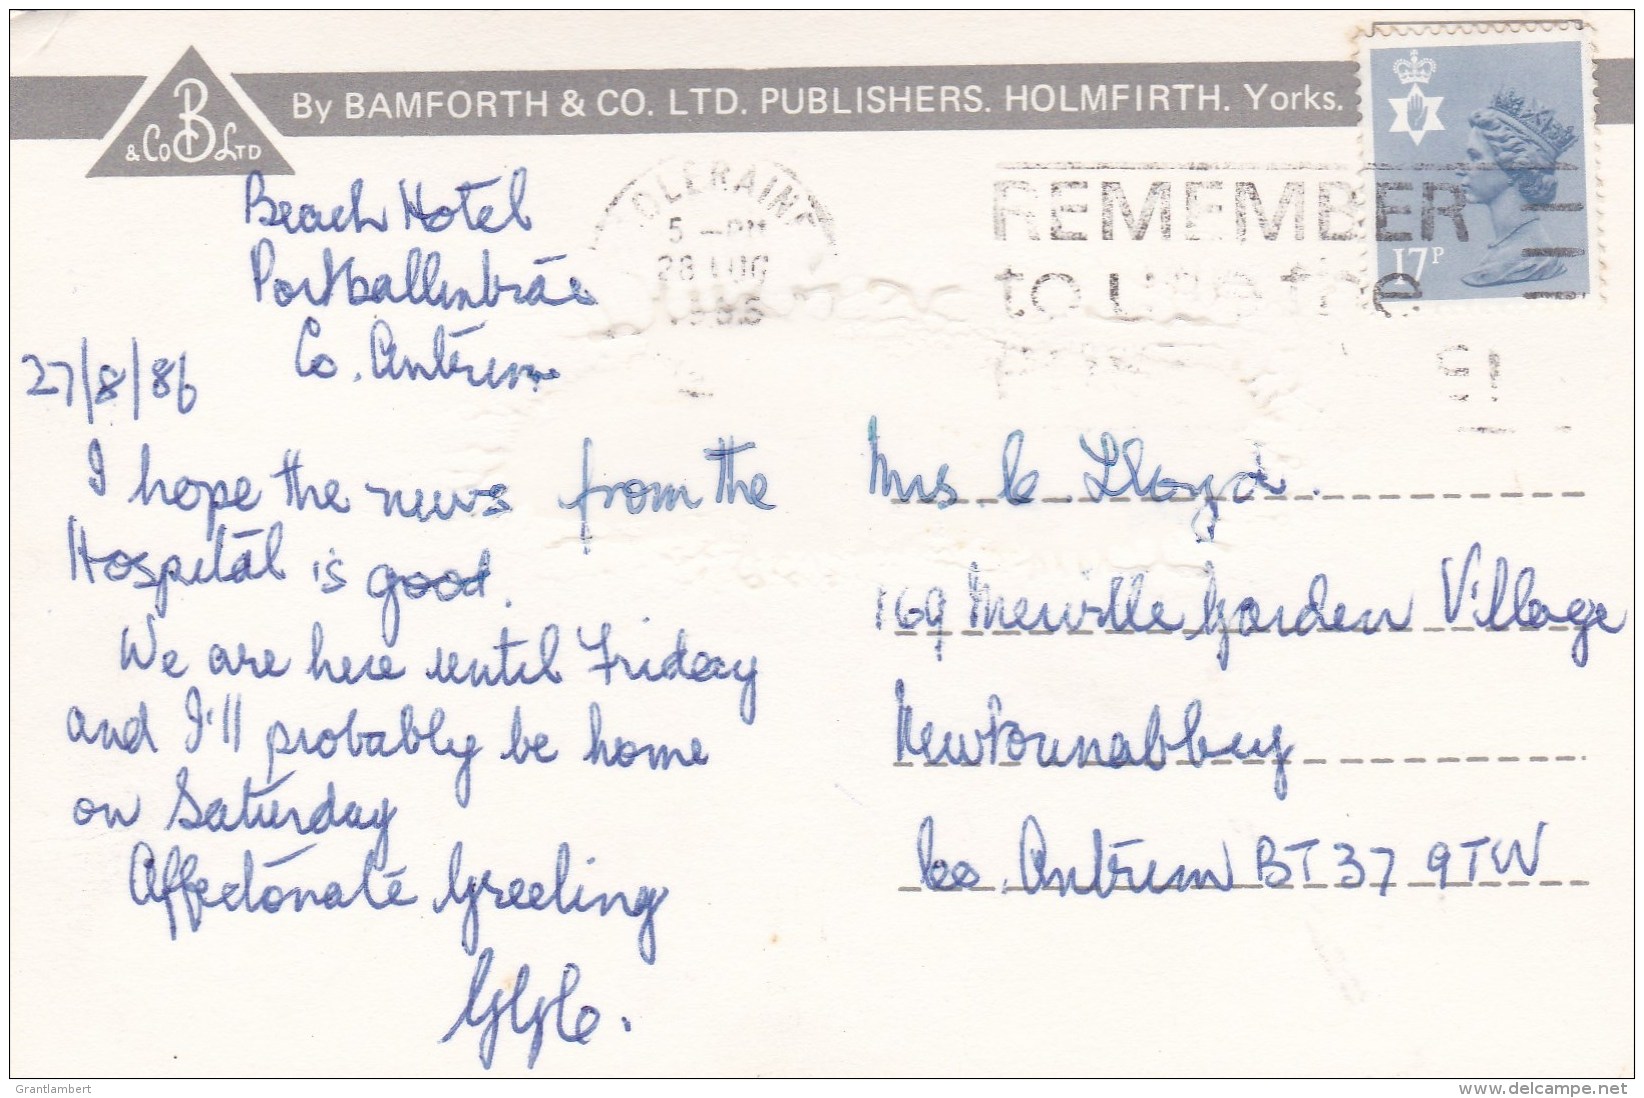 By BAMFORTH & CO. LTD. PUBLISHERS. HOLMFIRTH. Yorks.
B
& Co LTD
17P
COLERAINE
5 - PM
28 AUG
1986
REMEMBER
to use the
Beach Hotel
Portballintrae
Co. Antrim
27/8/86
I hope the news from the
Hospital is good.
We are here until Friday
and I'll probably be home
on Saturday
Affectonate Greeting
Mrs C. Lloyd.
169 Merville Garden Village
Newtounabbey
Co. Antrim BT37 9TW
Grantlambert
delcampe.net